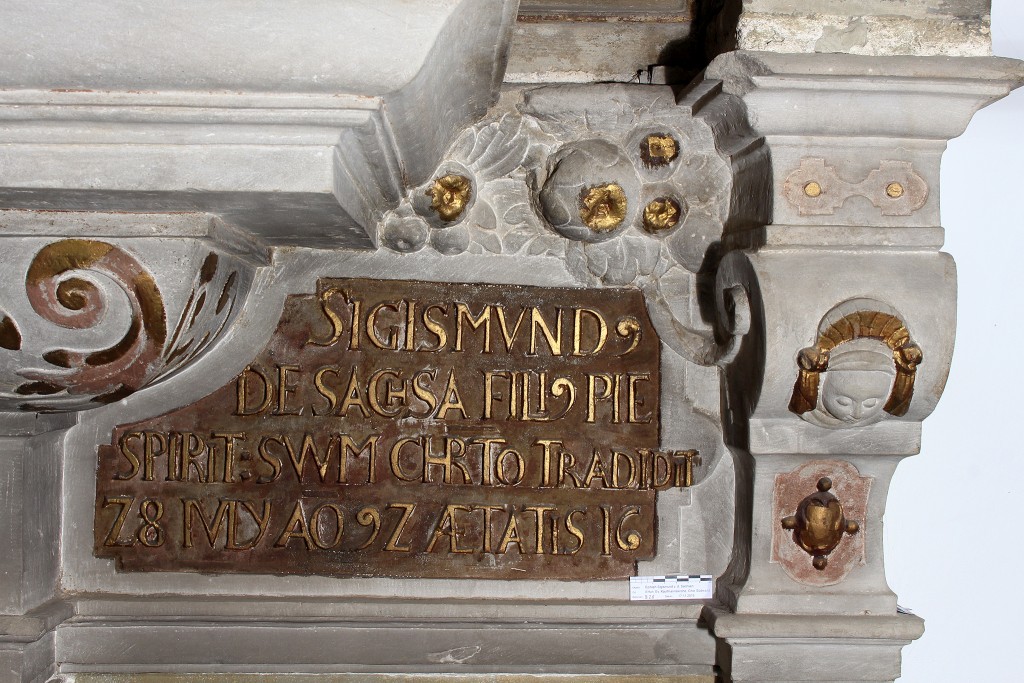 SIGISMVNDꝰ
DE SACHSA FILIꝰ PIE
SPIRIT: SWM CHRTO TRADIDIT
Z8 IVLY AO 9Z ÆTATIS 16